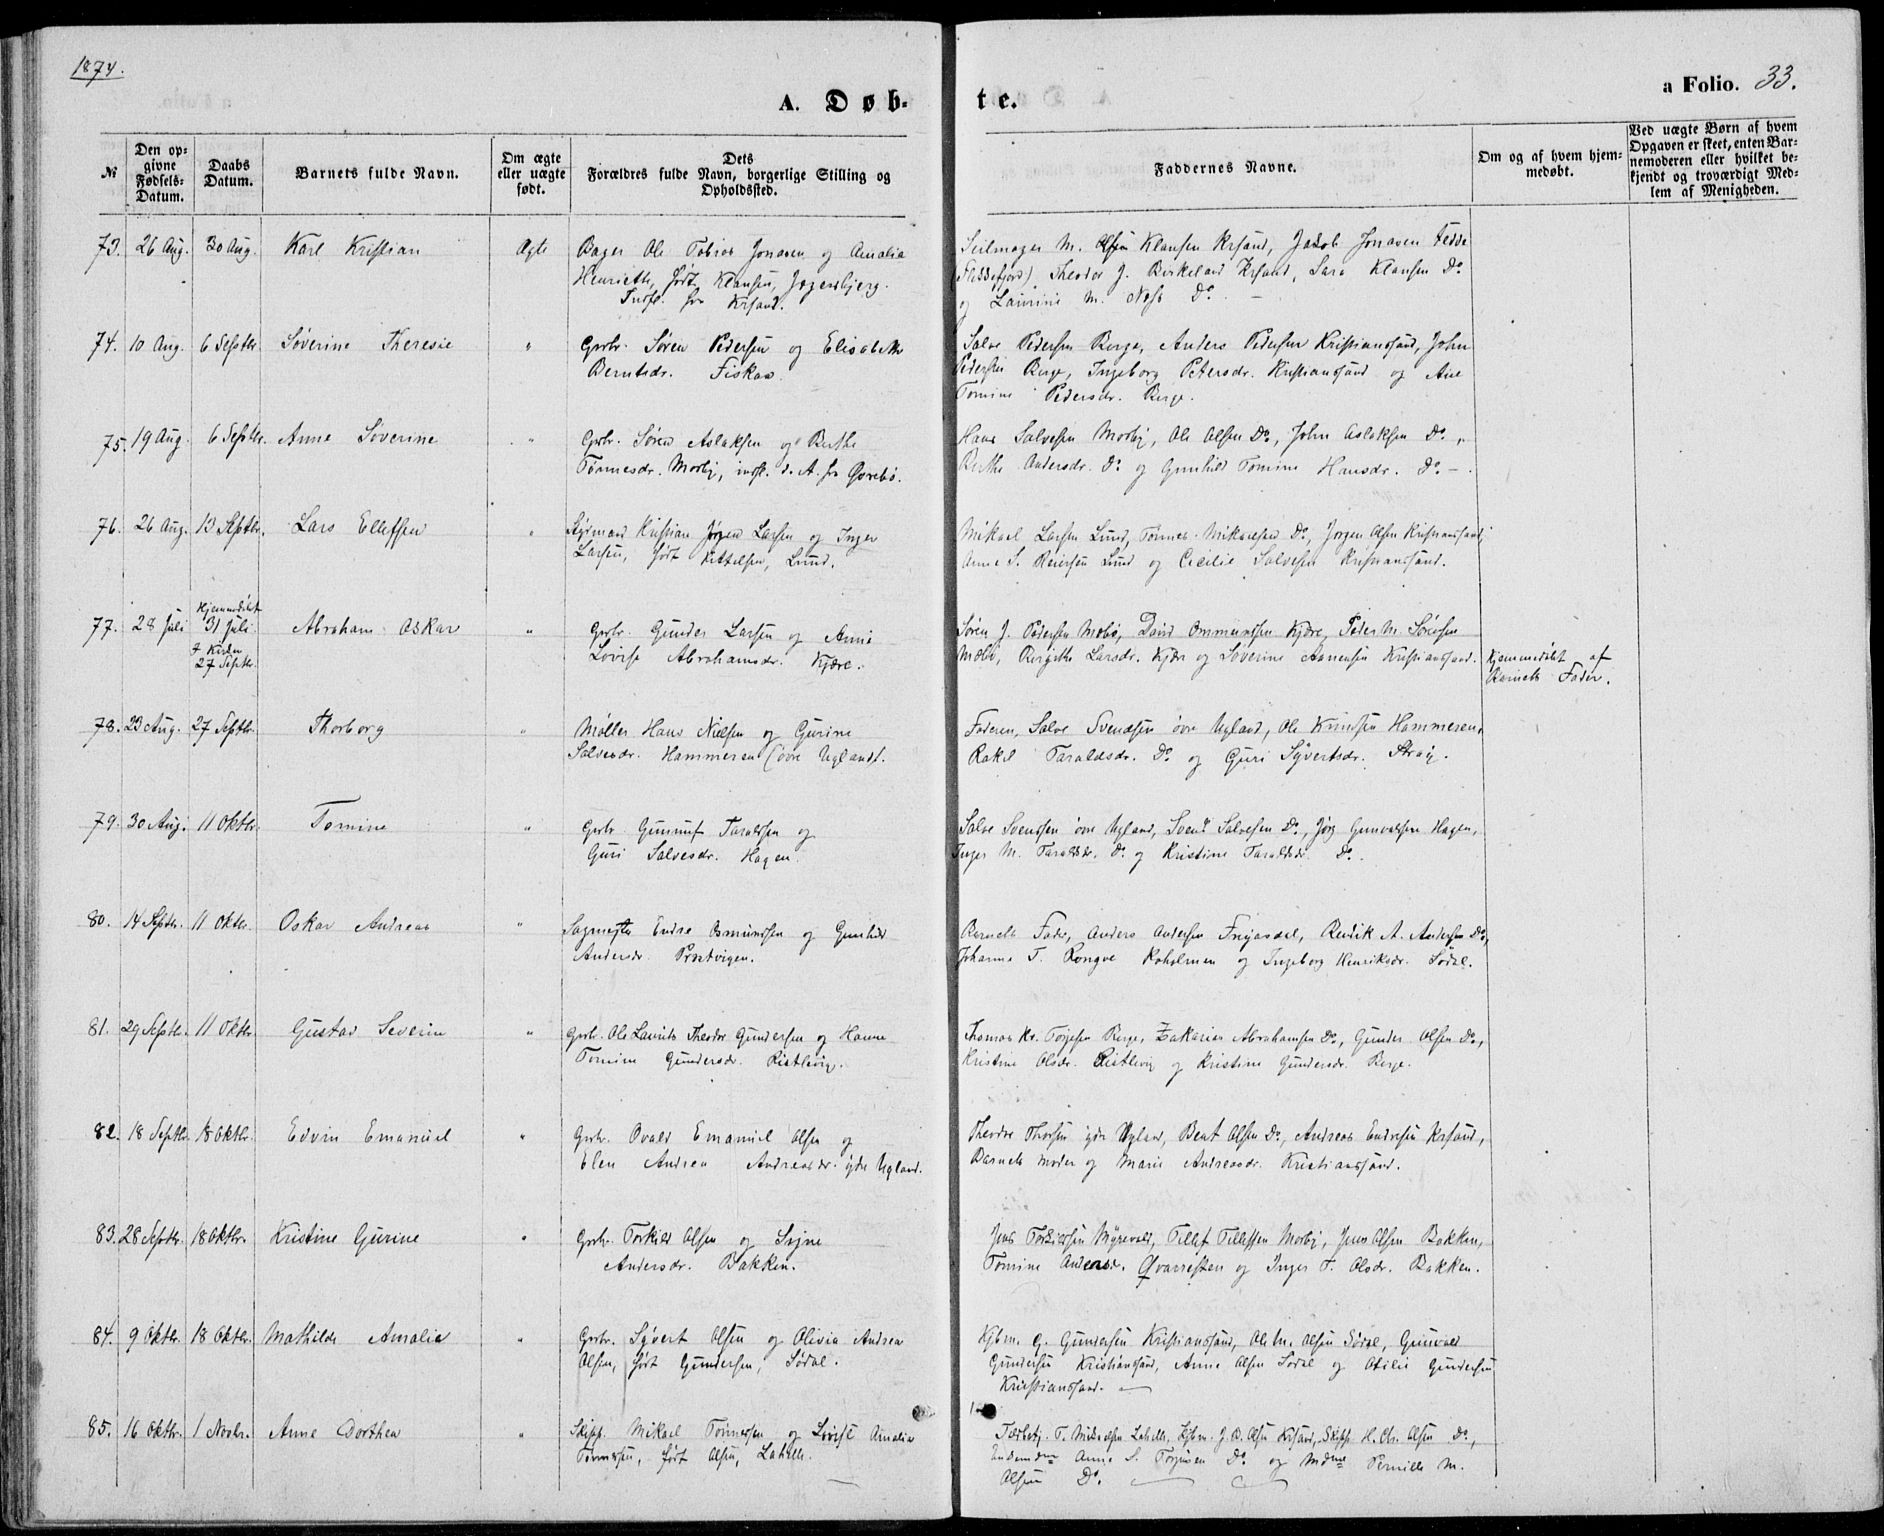 1874.
a Folio. 33.
A. Døb-
te.
№
Den op-
givne
Fødsels-
Datum.
Daabs
Datum.
Barnets fulde Navn.
Om ægte
eller uægte
født.
Dets
Forældres fulde Navn, borgerlige Stilling og
Opholdssted.
Faddernes Navne.
Om og af hvem hjem-
medøbt.
Ved uægte Børn af hvem
Opgaven er skeet, enten Bar-
nemoderen eller hvilket be-
kjendt og troværdigt Med-
lem af Menigheden.
73. 26 Aug. 30 Aug. Karl Kristian Ægte Bager Ole Tobias Jonasen og Amalia
Henriette, født Klausen, Jegersbjerg.
Indfl. fra Krsand.
Seilmager M. Olsen Klausen Krsand, Jakob Jonasen Fedde
(Fleddefjord), Theodor J. Birkeland Krsand, Sara Klausen Do
og Laurine M. Næss Do. —
74. 10 Aug. 6 Septbr. Søverine Theresie " Grbr. Søren Pedersen og Elisabeth
Berntsdr. Fiskaa.
Salve Pedersen Berge, Anders Pedersen Kristianssand, John
Pedersen Berge, Ingeborg Petersdr. Kristianssand og Ane
Tomine Pedersdr. Berge.
75. 19 Aug. 6 Septbr. Anne Søverine " Grbr. Søren Aslaksen og Berthe
Tønnesdr. Mosby, indfl. d. A. fra Øvrebø.
Hans Salvesen Mosby, Ole Olsen Do, John Aslaksen Do,
Berthe Andersdr. Do og Gunhild Tomine Hansdr. Do. —
76. 26 Aug. 13 Septbr. Lars Ellefsen " Styrmand Kristian Jørgen Larsen og Inger
Larsen, født Kittelsen, Lund.
Mikael Larsen Lund, Tønnes Mikaelsen Do, Jørgen Olsen Kristianssand,
Anne S. Reiersen Lund og Cicilie Salvesen Kristianssand.
77. 28 Juli Hjemmedøbt
31 Juli
i Kirken
27 Septbr. Abraham Oskar " Grbr. Gunder Larsen og Anne
Lovise Abrahamsdr. Kjære.
Søren J. Pedersen Mebø, David Ommundsen Kjære, Peder M. Sørensen
Mebø, Birgitte Larsdr. Kjære og Søverine Aanensen Kristianssand. Hjemmedøbt af
Barnets Fader.
78. 23 Aug. 27 Septbr. Thorborg " Møller Hans Nielsen og Gurine
Salvesdr. Hammeren (øvre Ugland).
Faderen, Salve Svendsen øvre Ugland, Ole Knudsen Hammeren,
Rakel Taraldsdr. Do og Guri Syvertsdr. Straj.
79. 30 Aug. 11 Oktbr. Tomine " Grbr. Gunuf Taraldsen og
Guri Salvesdr. Hagen.
Salve Svendsen øvre Ugland, Svend Salvesen Do, Jørg Gunvalsen Hagen,
Inger M. Taraldsdr. Do og Kristine Taraldsdr. Do.
80. 14 Septbr. 11 Oktbr. Oskar Andreas " Sagmester Endre Osmundsen og Gunhild
Andersdr. Prestvigen.
Barnets Fader, Anders Andersen Frigstdel, Rudik A. Andersen Do,
Johanne T. Rongve Roholmen og Ingeborg Henriksdr. Sødal.
81. 29 Septbr. 11 Oktbr. Gustav Severin " Grbr. Ole Laurits Theodor Gundersen og Hanne
Tomine Gundersdr. Kistlevig.
Thomas Kr. Torjesen Berge, Zakarias Abrahamsen Do, Gunder Olsen Do,
Kristine Olsdr. Kistlevig og Kristine Gundersdr. Berge.
82. 18 Septbr. 18 Oktbr. Edvin Emanuel " Grbr. Osvald Emanuel Olsen og
Elen Andrea Andreasdr. ydre Ugland.
Theodor Thorsen ydre Ugland, Bent Olsen Do, Andreas Endresen Krsand,
Barnets Moder og Marie Andreasdr. Kristianssand.
83. 28 Septbr. 18 Oktbr. Kristine Gurine " Grbr. Torkild Olsen og Signe
Andersdr. Bakken.
Jens Torkildsen Myrevold, Tellef Tellefsen Mosby, Jens Olsen Bakken,
Tomine Andersdr. Qvarresten og Inger T. Olsdr. Bakken.
84. 9 Oktbr. 18 Oktbr. Mathilde Amalie " Grbr. Syvert Olsen og Olivia Andrea
Olsen, født Gundersen, Sødal.
Kjbm. G. Gundersen Kristianssand, Ole M. Olsen Sødal, Gunvald
Gundersen Kristianssand, Anne Olsen Sødal og Otilie Gundersen
Kristianssand. —
85. 16 Oktbr. 1 Novbr. Anne Dorthea " Skipp. Mikael Tønnessen og Lovise Amalia
Tønnessen, født Olsen, Lahelle.
T. Mikaelsen Lahelle, Kjbm. J. B. Olsen Krsand, Skipp. H. Chr. Olsen Do,
Anne S. Torjusen Do og Mdme Pernille M.
Olsen Do. —